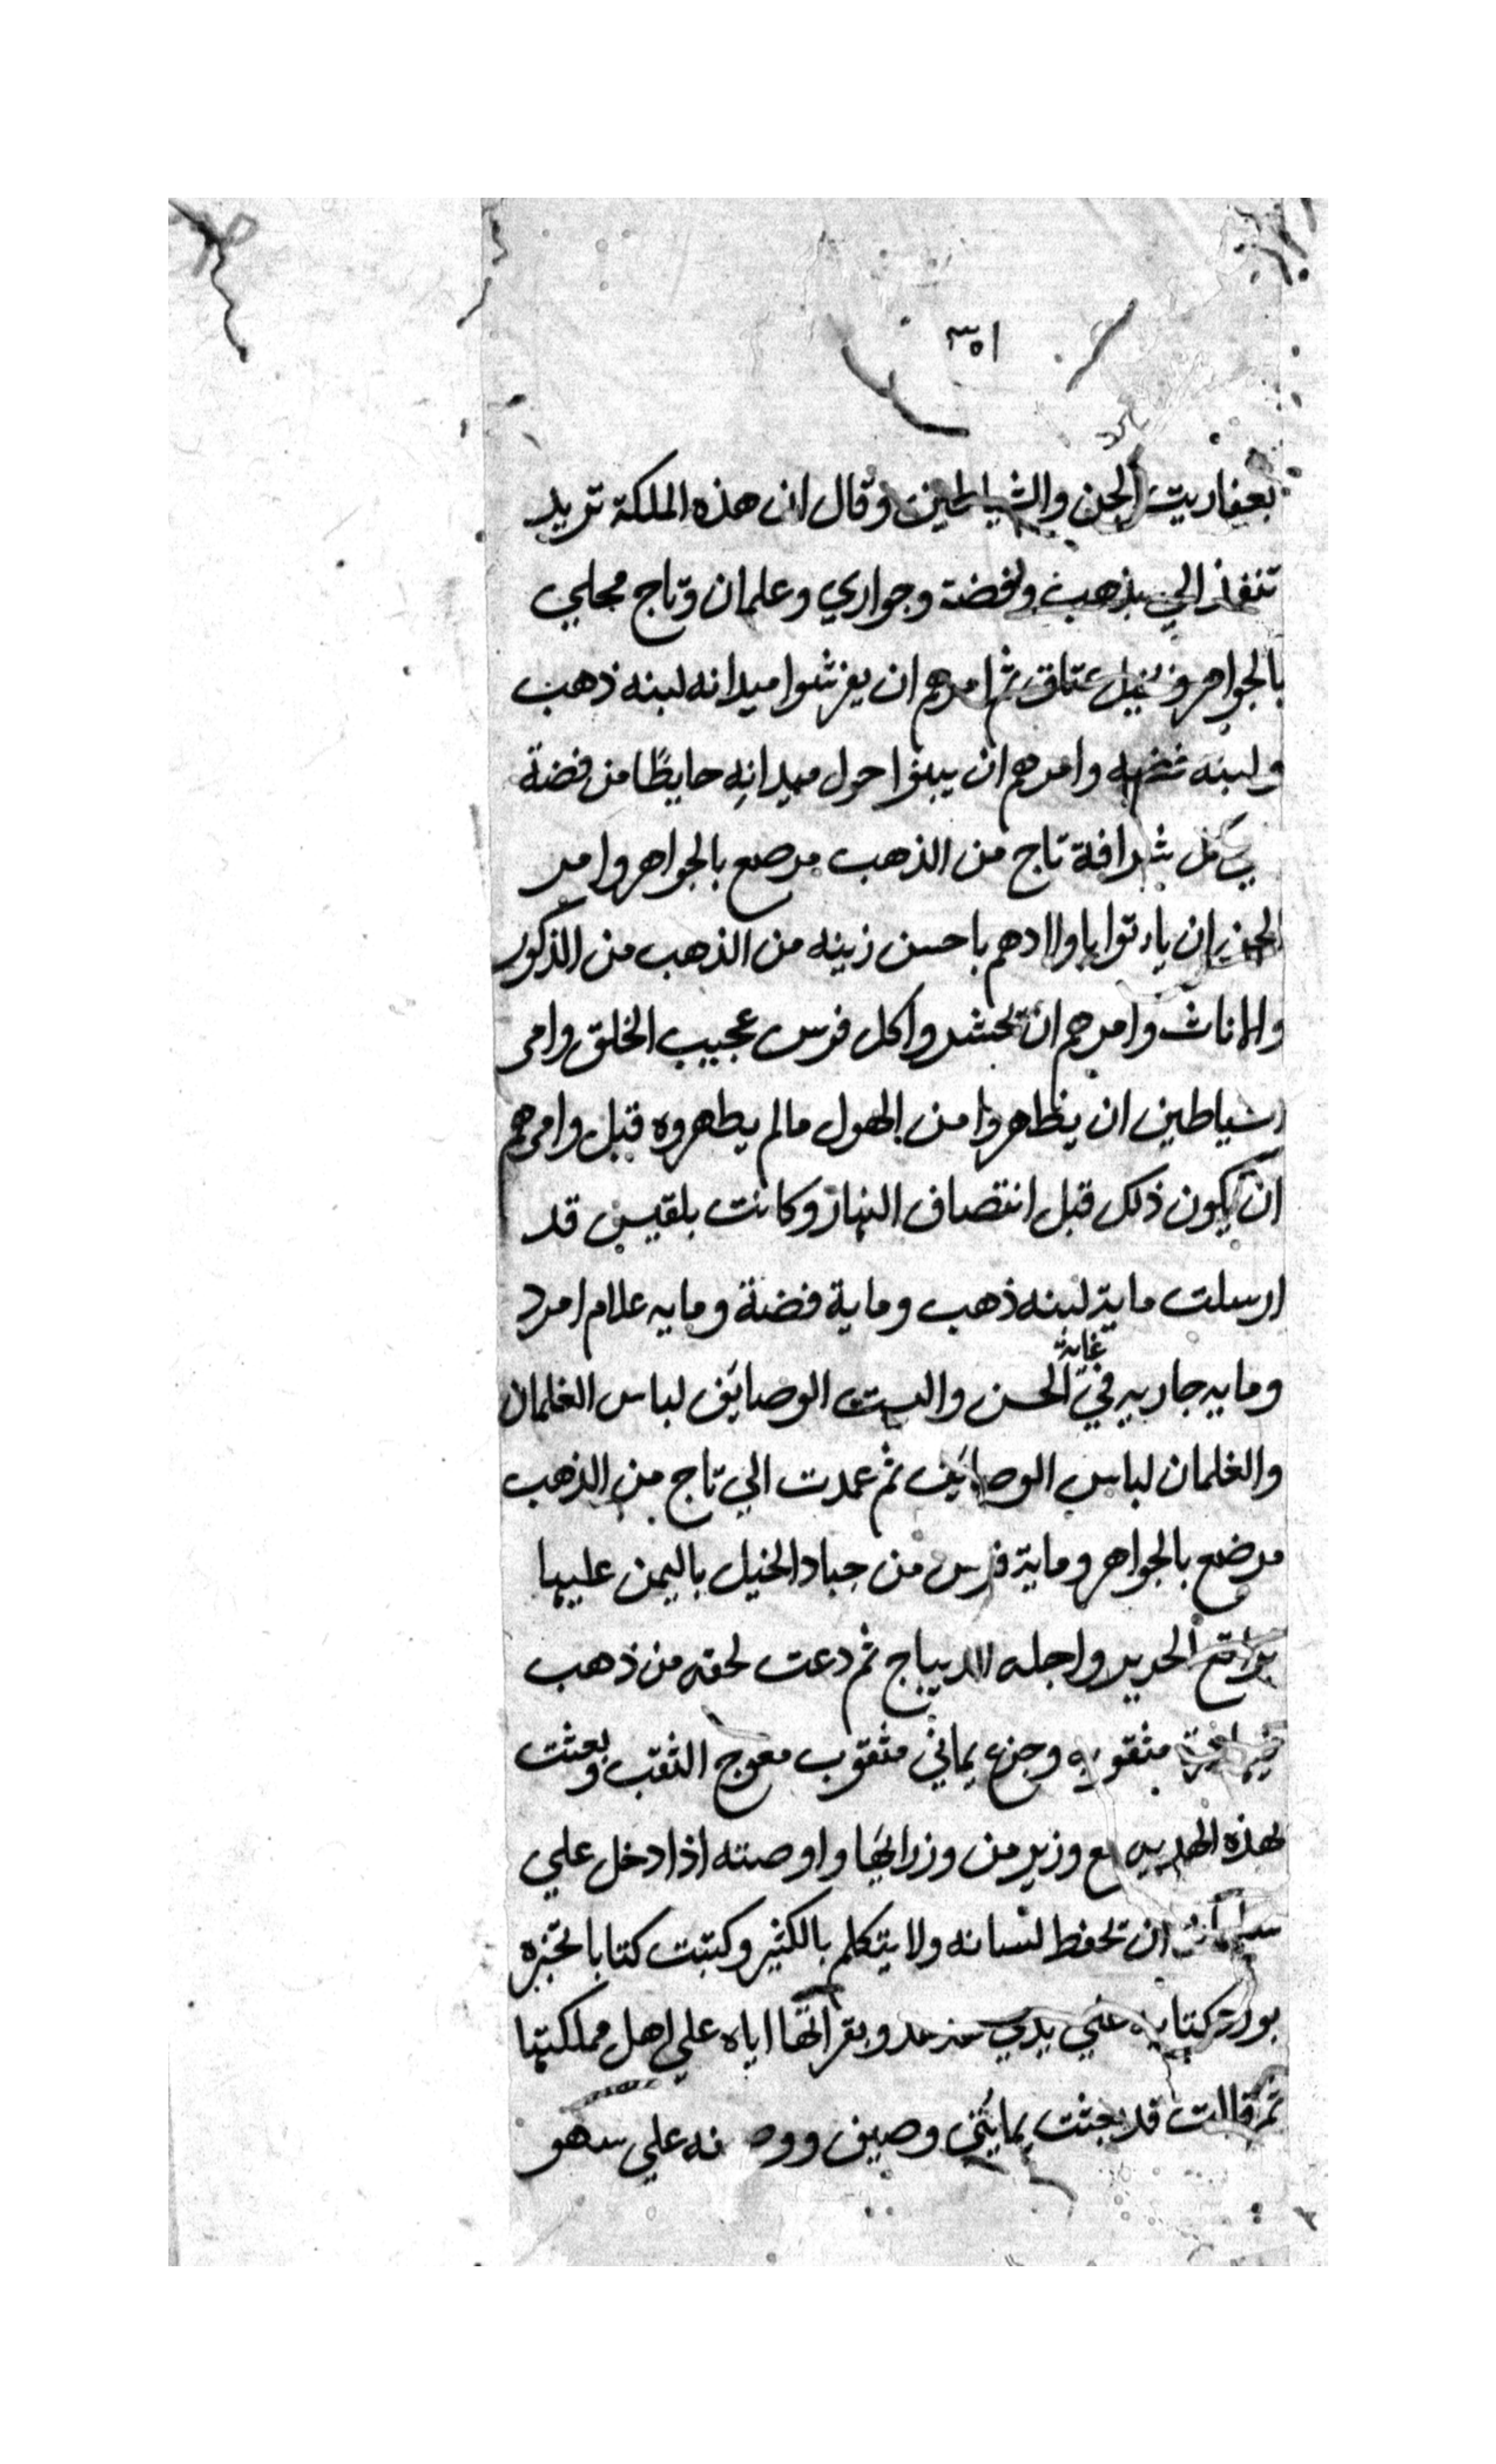 ١٥٣
بعفاريت الجن والشياطين وقال ان هذه الملكة تريد
تنفذ الي بذهب وفضة وجواري وعلمان وتاج محلي
بالجواهر وخيل عتاق ثم امرهم ان يفرشوا ميدانه لبنه ذهب
ولبنه فضه وامرهم ان يبنوا حول ميدانه حايطا من فضة
في كل شرافة تاج من الذهب مرصع بالجواهر وامر
الجن ان ياتوا باولادهم باحسن زينه من الذهب من الذكور
والاناث وامرهم ان تحشدوا كل فرس عجيب الخلق وامر
الشياطين ان يظاهروا من الهول مالم يطهروه قبل وامرهم
ان يكون ذلك قبل انتصاف النهار وكانت بلقيس قد
ارسلت ماية لبنه ذهب وماية فضة ومايه علام امرد
ومايه جاريه في غاية الحسن والبست الوصايف لباس الغلمان
والغلمان لباس الوصايف ثم عمدت الي تاج من الذهب
مرضع بالجواهر وماية فرس من جياد الخيل باليمن عليها
براقع الحرير واجله الديباج ثم دعت لحقه من ذهب
مثقوبه وجزع يماني مثقوب معوج الثقب وبعثت
بهذه الهديه مع وزير من وزرايها واوصته اذا دخل علي
سليمان ان تحفط لسانه ولا يتكلم بالكثير وكتبت كتابا تخبره
بورود كتابه علي يدي هدهد وبقراتها اياه علي اهل مملكتها
ثم قالت قد بعثت بمايتي وصيف ووصيفه علي